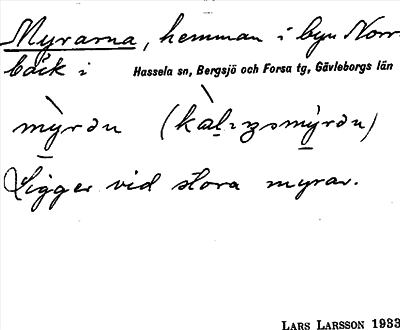 Myrarna, hemman i byn Norr-
bäck i Hassela sn, Bergsjö och Forsa tg, Gävleborgs län
Ligger vid stora myrar.
LARS LARSSON 1933